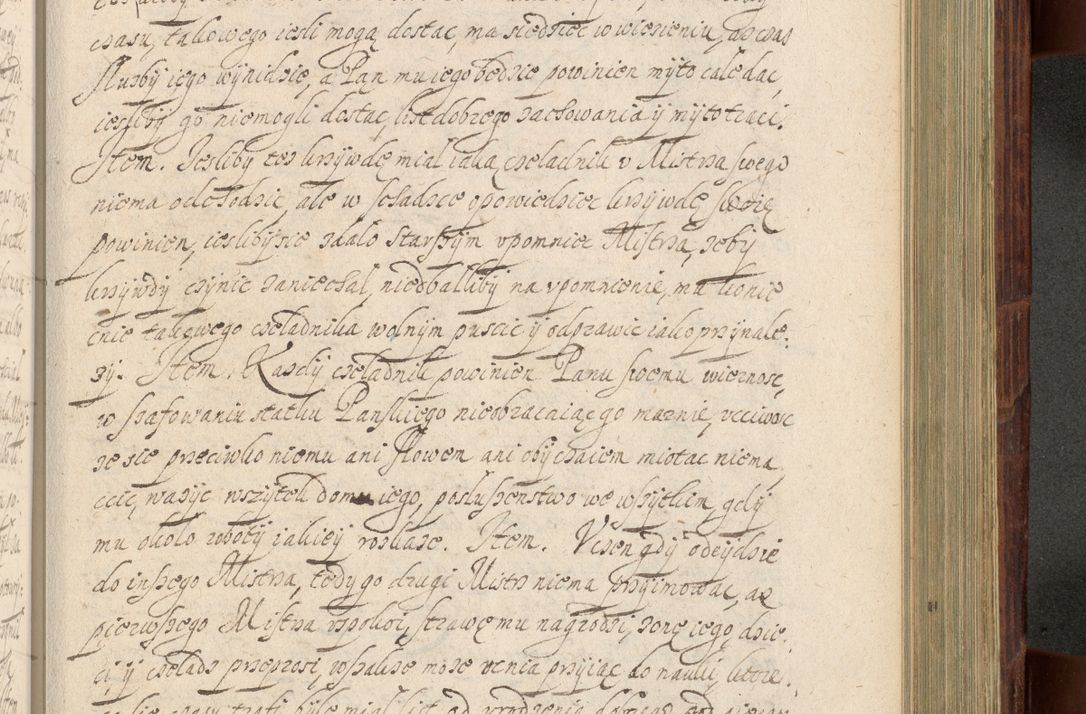 czasu, takowego iesli mogą dostac, ma siedziec w więzieniu, aż czas
służby iego wynidzie, a Pan mu iego będzie powinien myto całe dac,
iesliby go niemogli dostac, list dobrego zachowania y myto traci.
Item. Iesliby tez krzywdę miał iaką czeladnik v Mistrza swego
niema odchodzic, ale w schadzce opowiedziec krzywdę swoię
powinien, iesliby sie zdało starszym vpomniec Mistrza, zeby
krzywdy czynic zaniechał, niedbałliby na vpomnienie, ma konie
cnie takowego czeladnika wolnym puscic y odprawic iako przynale:
zy. Item. Kazdy czeladnik powinien Panu swemu wiernosc,
w szafowaniu statku Panskiego nieobracaiąc go marnie, vcciwosc
ze sie przeciwko niemu ani słowem ani obyczaiem miotac niema,
czcic, wazyc wszytek dom iego, posłuszenstwo we wszytkiem, gdy
mu około roboty iakiey roskaze. Item. Vczen gdy odeydzie
do inszego Mistrza, tedy go drugi Mistrz niema przyimowac, aż
pierwszego Mistrza vspokoi, strawę mu nagrodzi, zonę iego dzie:
ci, y czeladz przeprosi, wszakze moze vcznia przyiąc do nauki, ktore: